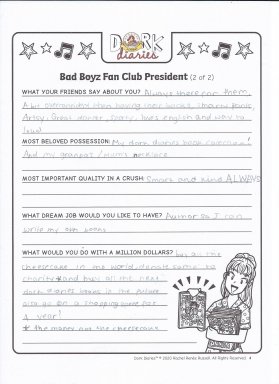 DORK
diaries
Bad Boyz Fan Club President (2 of 2)
WHAT YOUR FRIENDS SAY ABOUT YOU? Always there for them,
A bit overconfident then having their backs,
Artsy, Great dancer, Sporty, loves english and way to
loud
MOST BELOVED POSSESION: My dork diaries book collection!
And my grandpas / mums necklace
MOST IMPORTANT QUALITY IN A CRUSH: Smart and kind ALWAYS
WHAT DREAM JOB WOULD YOU LIKE TO HAVE? Author so I can
write my own books
WHAT WOULD YOU DO WITH A MILLION DOLLARS? buy all the
cheesecake in the world, donate some to
charity and buy all the next
dork diaries books in the future
also go on a shopping spree for
A year!
* the money not the cheesecake
Dork Diaries™ © 2020 Rachel Renée Russell. All Rights Reserved. 4